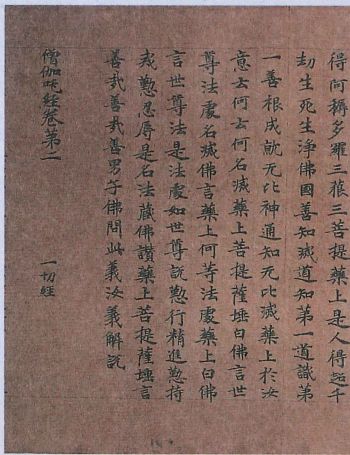 得何耨多羅三藐三菩提藥上是人得超千
劫生死生淨佛國善知滅道知第一道識第
一善根成就无比神通知无比滅藥上於汝
意云何云何名滅藥上菩提薩埵白佛言世
尊法處名滅佛言藥上何等法處藥上白佛
言世尊法是法處如世尊說懃行精進懃持
戒懃忍辱是名法藏佛讚藥上菩提薩埵言
善哉善哉善男子佛問此義汝義解說
僧伽吒經卷第二 一切經